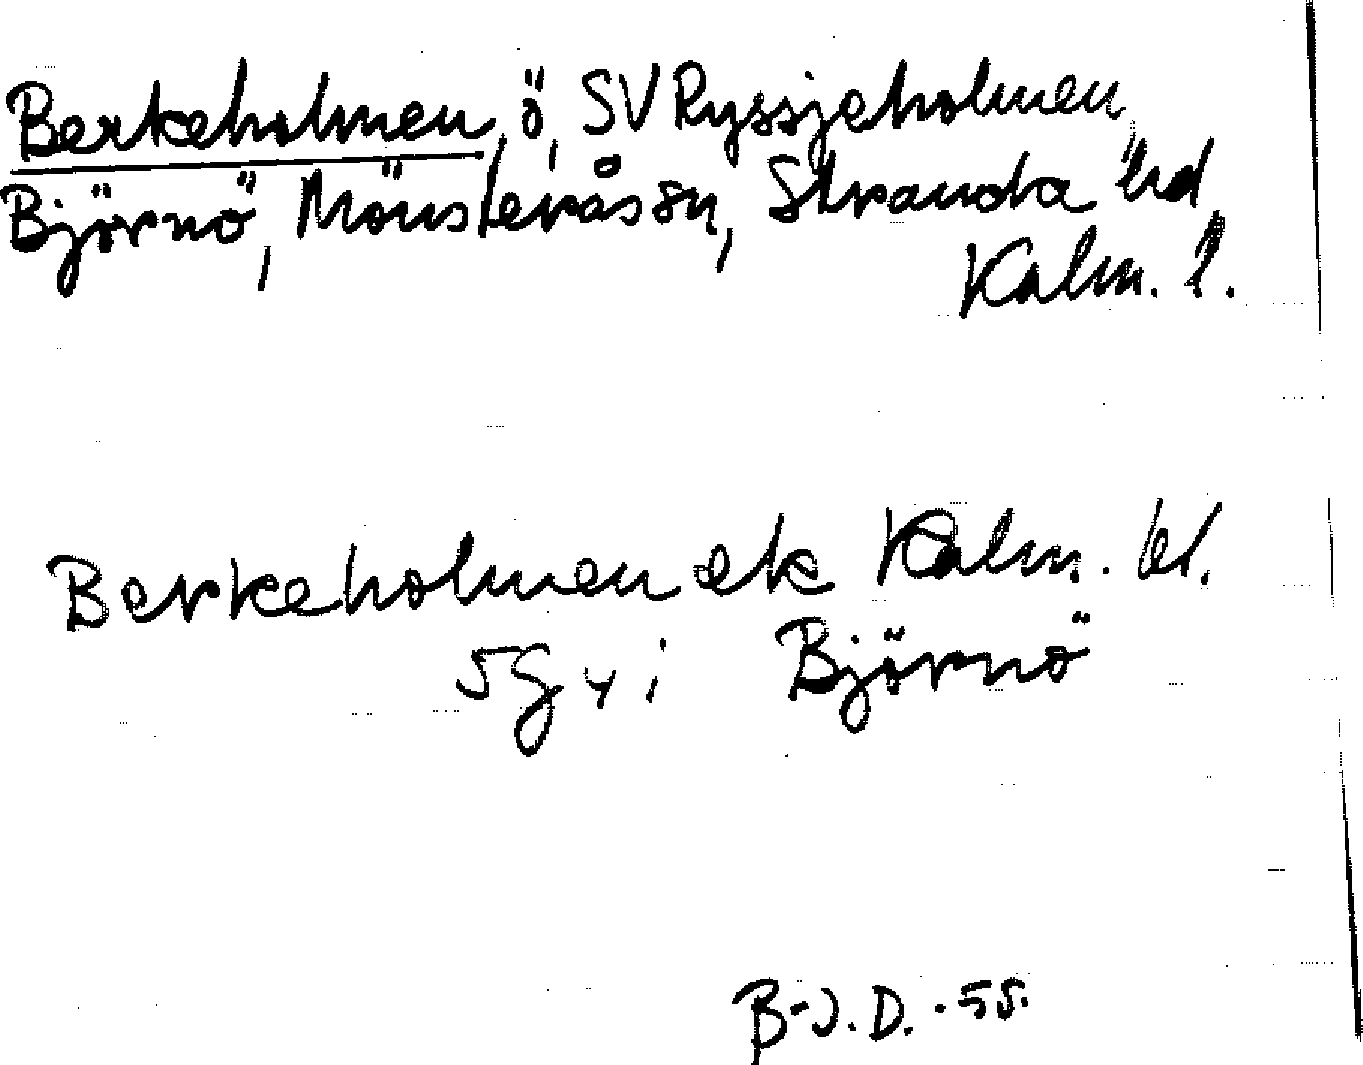 Berkeholmen, ö, SV Ryssjeholmen,
Björnö, Mönsterås sn, Stranda hd,
Kalm. l.
Berkeholmen ek Kalm. bl.
5G y i Björnö
B-J.D. -55.